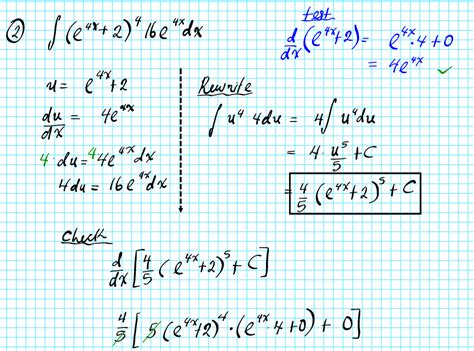 ② ∫(e^{4x}+2)^4 16e^{4x}dx
test
d/dx(e^{4x}+2) = e^{4x}·4+0
= 4e^{4x} ✓
u = e^{4x}+2
du/dx = 4e^{4x}
4·du = 4·4e^{4x}dx
4du = 16e^{4x}dx
Rewrite
∫u^4 4du = 4∫u^4du
= 4·u^5/5+C
= 4/5(e^{4x}+2)^5+C
Check
d/dx[4/5(e^{4x}+2)^5+C]
4/5[5(e^{4x}+2)^4·(e^{4x}·4+0)+0]